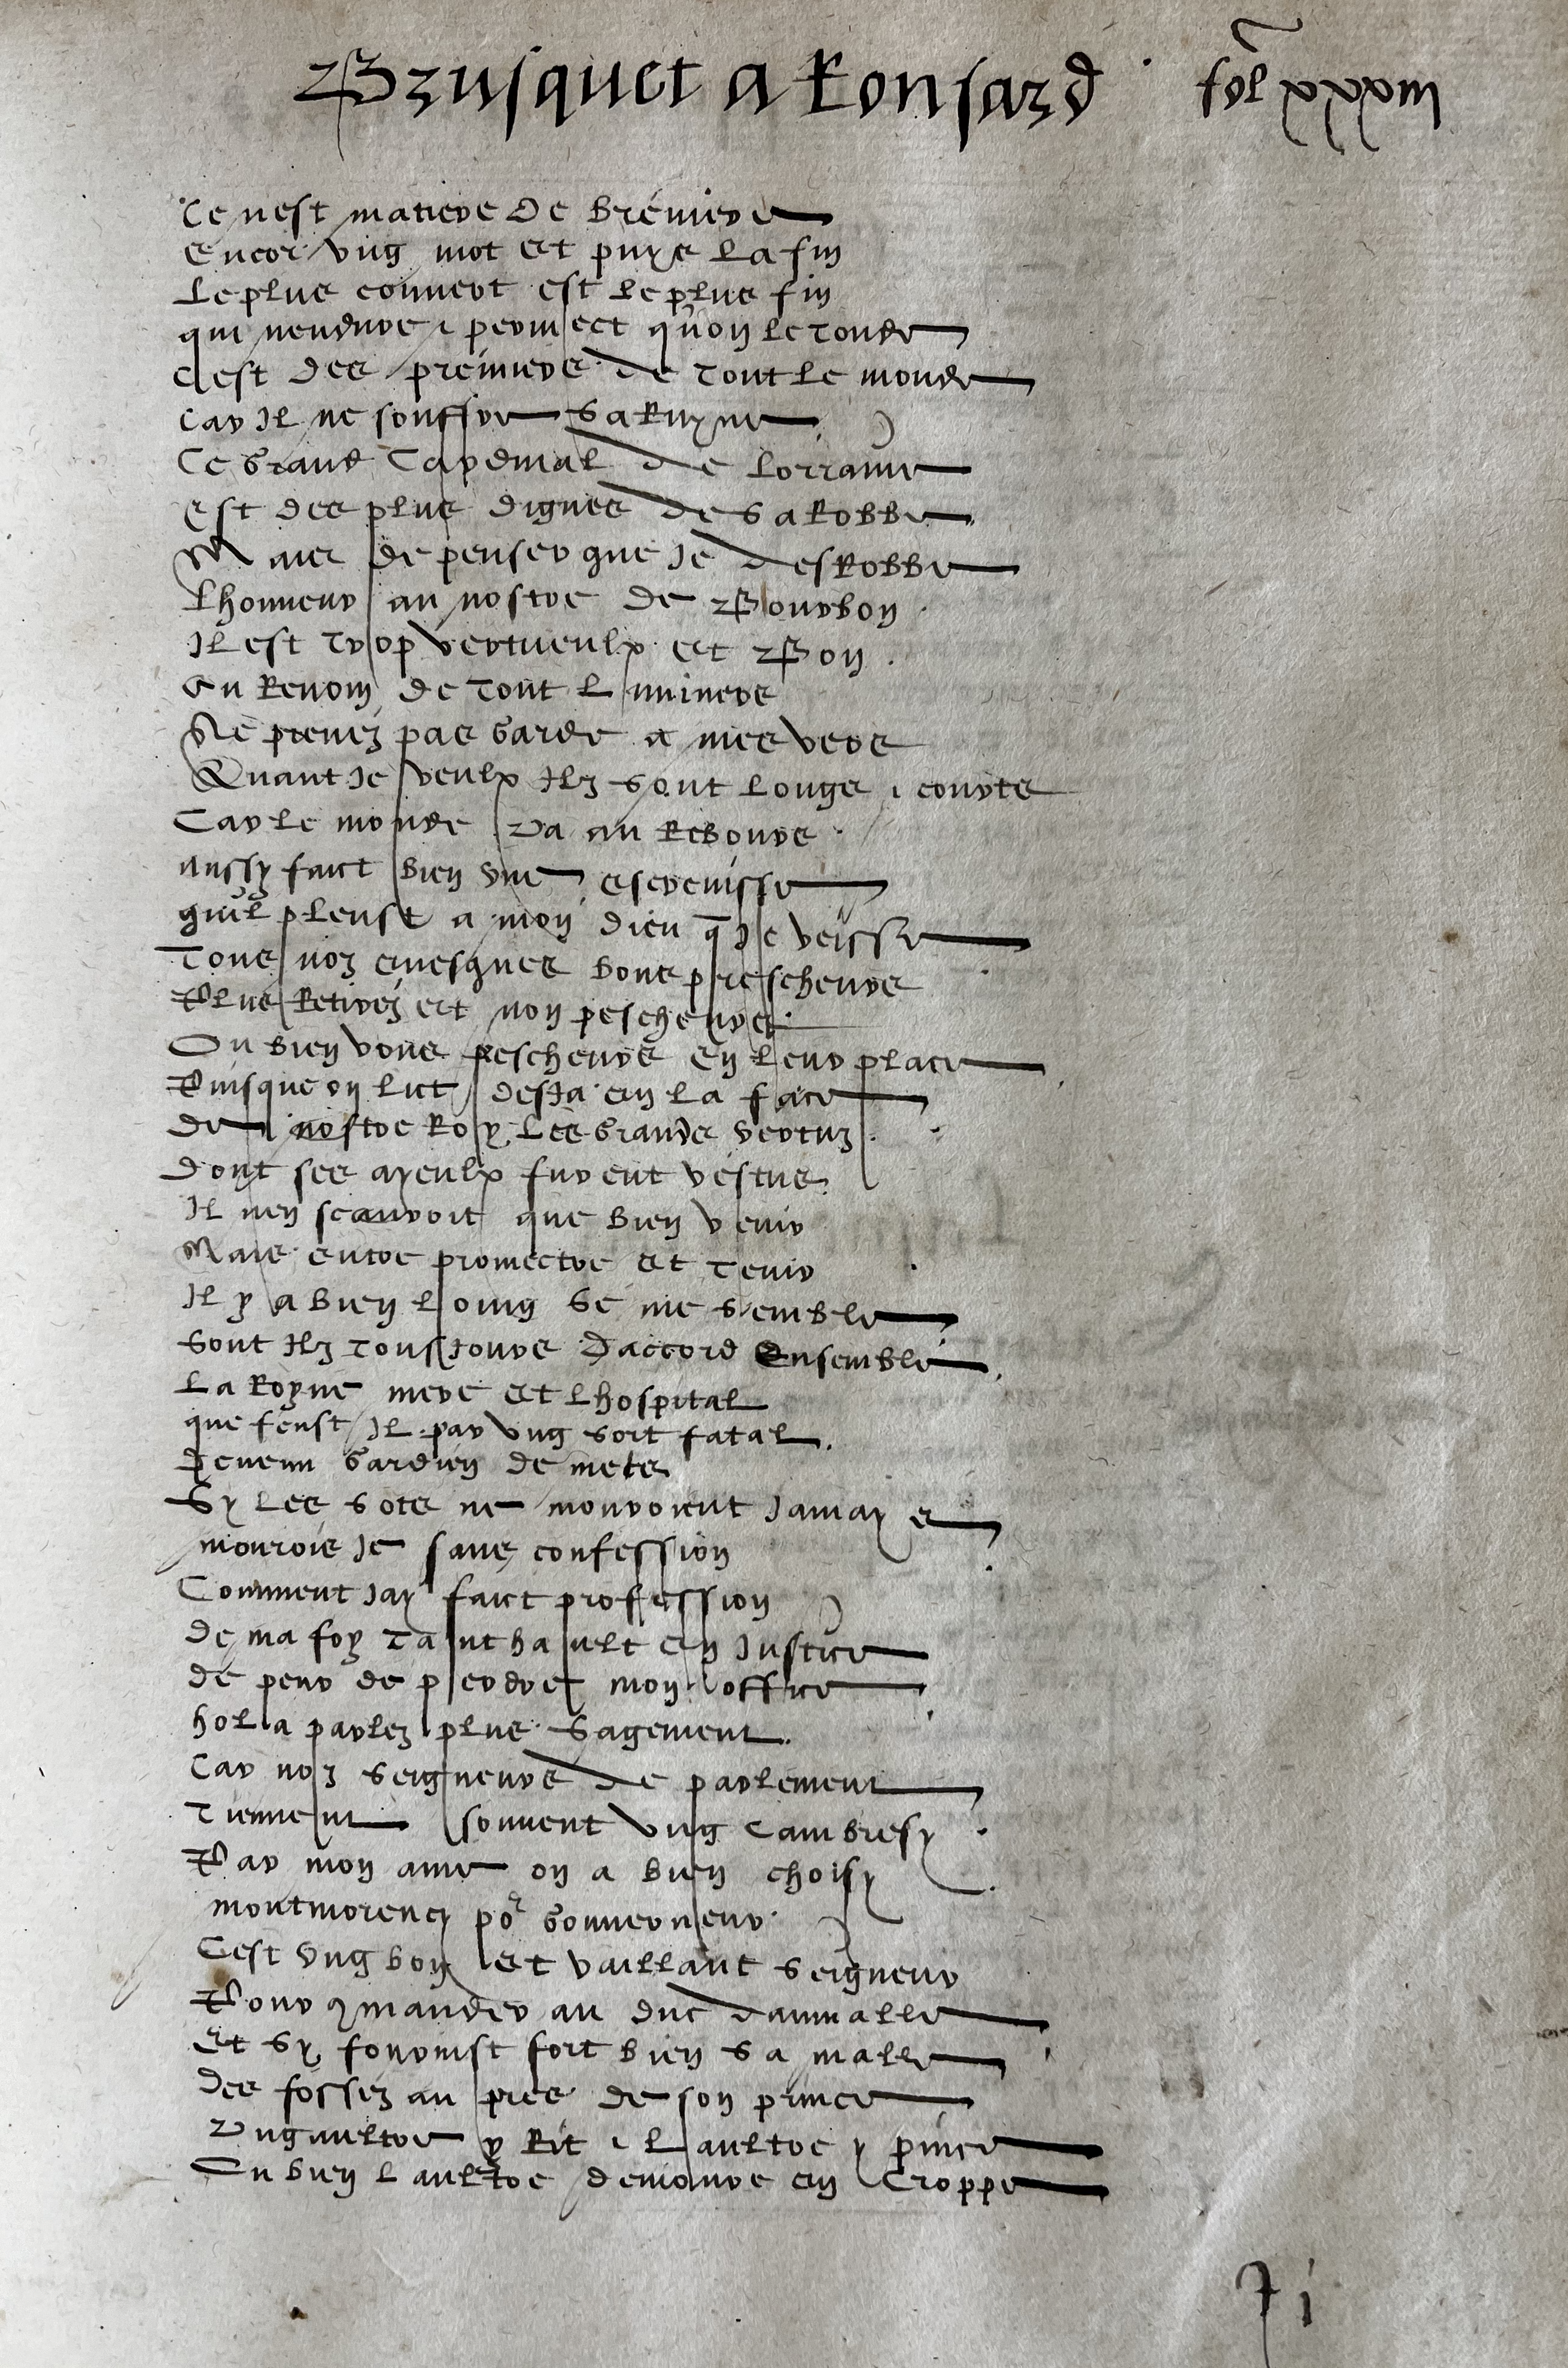 Brusquet a Ronsard fol xxxiii
Ce nest matiere de breviere
encor ung mot et puys la fin
Le plus couvert est le plus fin
qui nendure & permect quon le tonde
Cest des premiers de tout le monde
Car Il ne souffre sa Ruyne
Ce grand Cardinal de Lorraine
est des plus dignes de sa Robbe
Mais de penser que Je desRobbe
Lhonneur au nostre de Bourbon
Il est trop vertueulx et Bon
Au Renom de tout Lunivers
Ne prenez pas garde a mes vers
Quant Je veulx Ilz sont longs & courts
Car le monde va au Rebours
aussy faict bien une escrevisse
quil pleust a mon dieu q Je veisse
Tous noz evesques bons prescheurs
Plus Retirez et non pescheurs
Ou bien vous pescheurs en leur place
Puisque on lict desja en la face
de nostre Roy les grands vertuz
dont ses ayeulx furent vestus
Il nen scauroit que bien venir
Mais entre promectre et tenir
Il y a bien loing se me semble
Sont Ilz tousjours daccord Ensemble
La Royne mere et Lhospital
que feust Il par ung sort fatal
devenu gardien de mets
Sy les sots ne mouroient Jamays
mourois Je sans confession
Comment Jay faict profession
de ma foy tant hault en Justice
de peur de perdre mon office
hola parlez plus sagement
Car noz seigneurs de parlement
Tiennent souvent ung Cambresy
Par mon ame on a bien choisy
montmorency por gouverneur
Cest ung bon et vaillant seigneur
Pour 9mander au duc daumalle
et sy fournist fort bien sa malle
des fossez au pres de son prince
Ung aultre y Rit & Laultre y pince
Ou bien laultre demoure en Croppe
7i